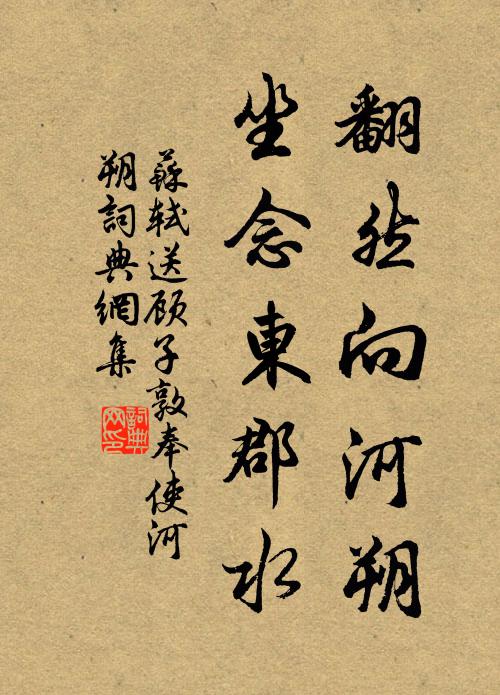 翻然向河朔
坐念東郡水
蘇軾送顾子敦奉使河
朔詞典網集
詞典
网印